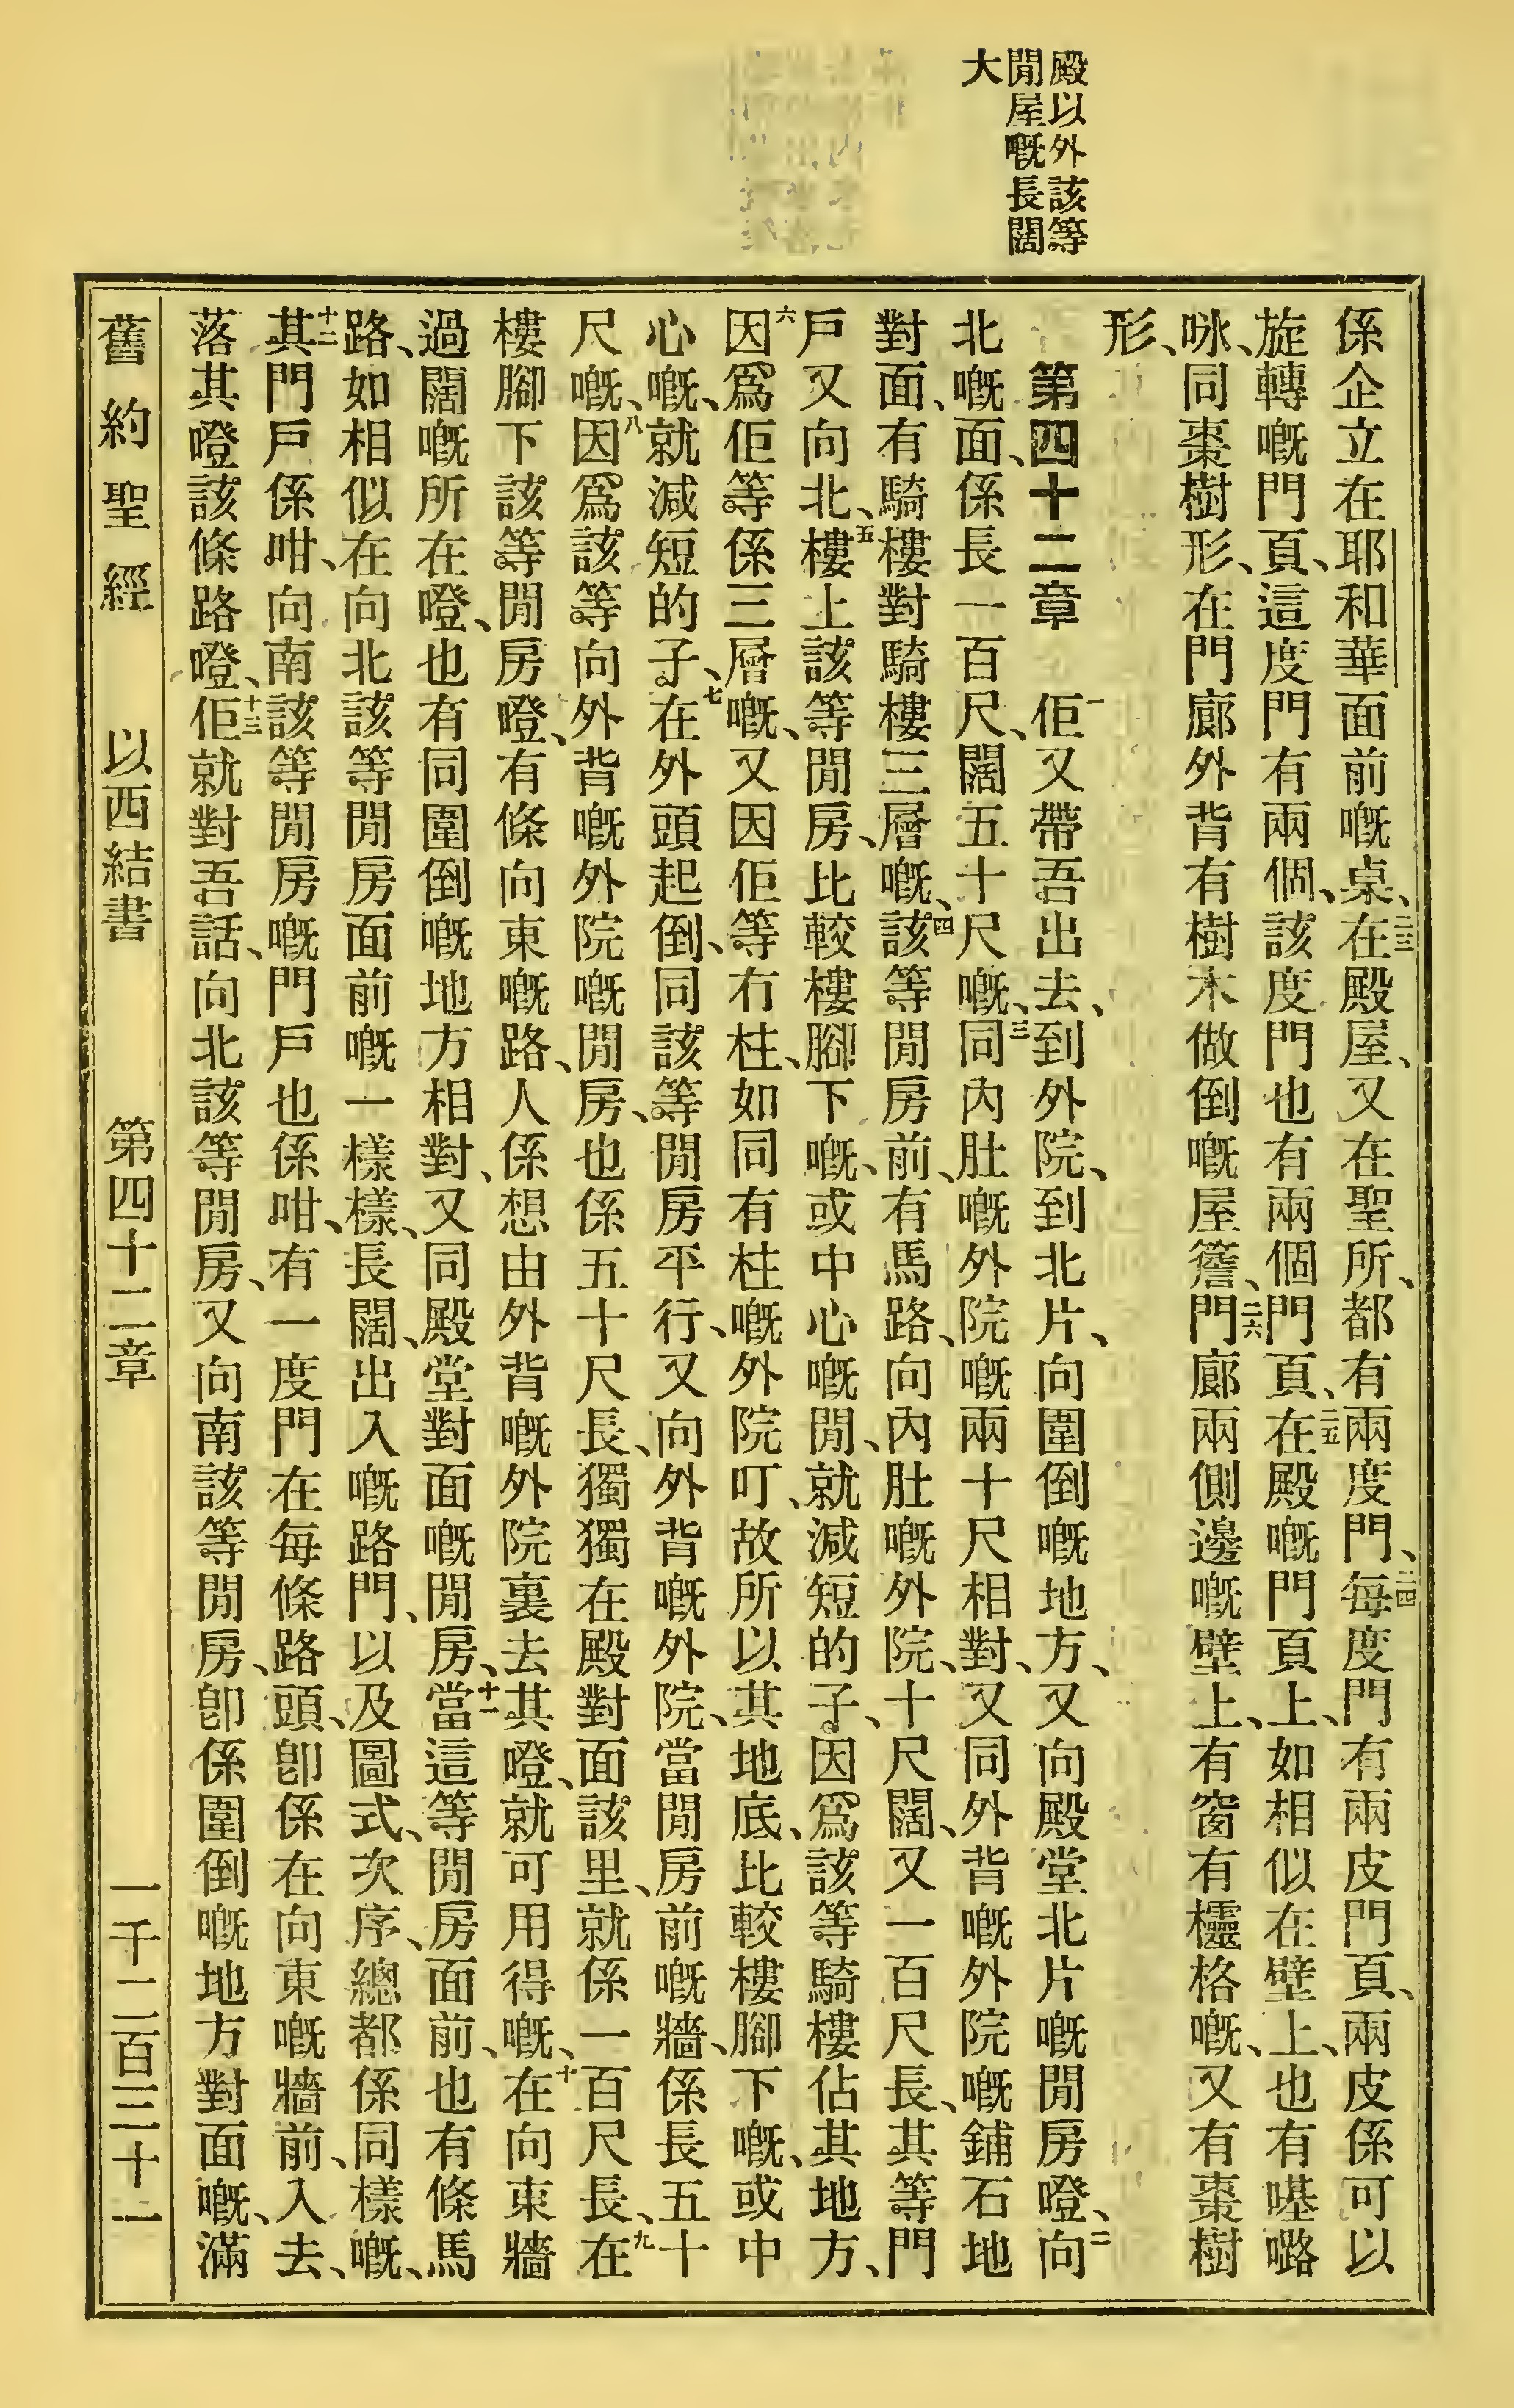 殿以外該等
閒屋嘅長闊
大
係企立在耶和華面前嘅桌、二三在殿屋、又在聖所、都有兩度門、二四每度門有兩皮門頁、兩皮係可以
旋轉嘅門頁、這度門有兩個、該度門也有兩個門頁、二五在殿嘅門頁上、如相似在壁上、也有𠹌㘔
咏、同棗樹形、在門廊外背有樹木做倒嘅屋簷、二六門廊兩側邊嘅壁上、有窗有欞格嘅、又有棗樹
形、
第四十二章 一佢又帶吾出去、到外院、到北片、向圍倒嘅地方、又向殿堂北片嘅閒房嶝、二向
北嘅面、係長一百尺、闊五十尺嘅、三同內肚嘅外院嘅兩十尺相對、又同外背嘅外院嘅鋪石地
對面、有騎樓對騎樓三層嘅、四該等閒房前、有馬路、向內肚嘅外院、十尺闊、又一百尺長、其等門
戶又向北、五樓上該等閒房、比較樓腳下嘅、或中心嘅閒、就減短的子、因爲該等騎樓佔其地方、
六因爲佢等係三層嘅、又因佢等冇柱、如同有柱嘅外院叮、故所以其地底、比較樓腳下嘅、或中
心嘅、就減短的子、七在外頭起倒、同該等閒房平行、又向外背嘅外院、當閒房前嘅牆、係長五十
尺嘅、八因爲該等向外背嘅外院嘅閒房、也係五十尺長、獨獨在殿對面該里、就係一百尺長、九在
樓腳下該等閒房嶝、有條向東嘅路、人係想由外背嘅外院裏去其嶝、就可用得嘅、十在向東牆
過闊嘅所在嶝、也有同圍倒嘅地方相對、又同殿堂對面嘅閒房、十一當這等閒房面前、也有條馬
路、如相似在向北該等閒房面前嘅一樣樣、長闊、出入嘅路門、以及圖式、次序、總都係同樣嘅、
十二其門戶係咁、向南該等閒房嘅門戶也係咁、有一度門在每條路頭、卽係在向東嘅牆前、入去、
落其嶝該條路嶝、十三佢就對吾話、向北該等閒房、又向南該等閒房、卽係圍倒嘅地方對面嘅、滿
舊約聖經 以西結書 第四十二章 一千二百三十一